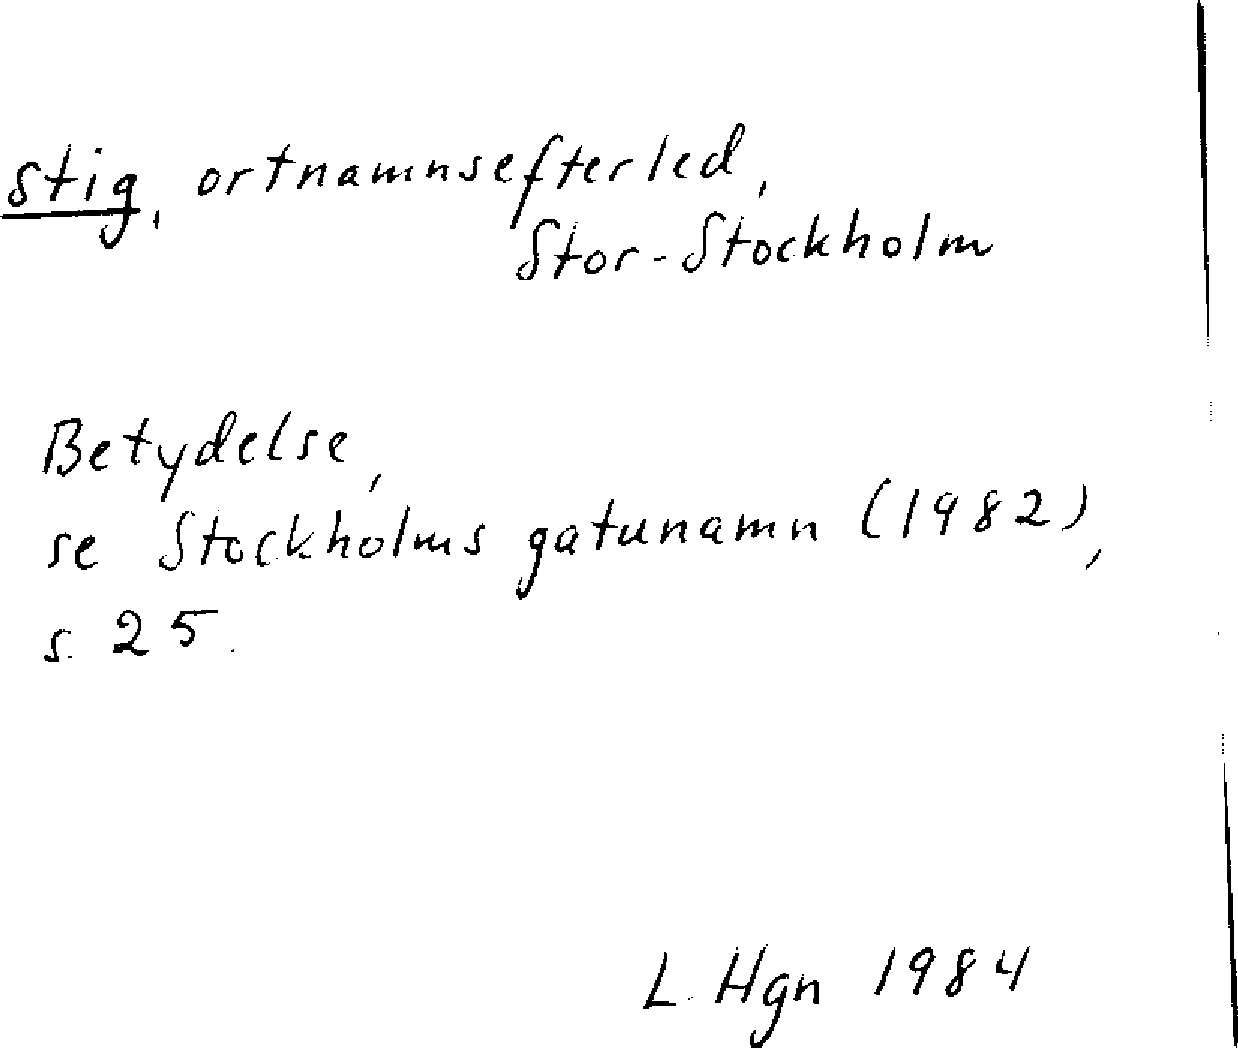 stig, ortnamnsefterled,
Stor-Stockholm
Betydelse,
se Stockholms gatunamn (1982),
s. 25.
L. Hgn 1984